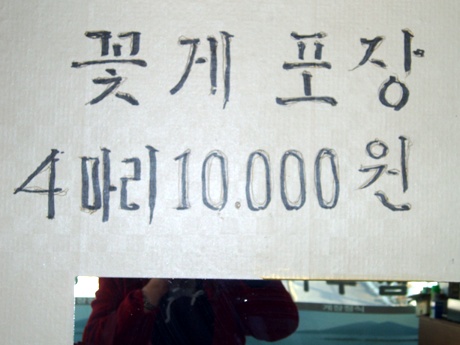 꽃게 포장
4마리 10.000원